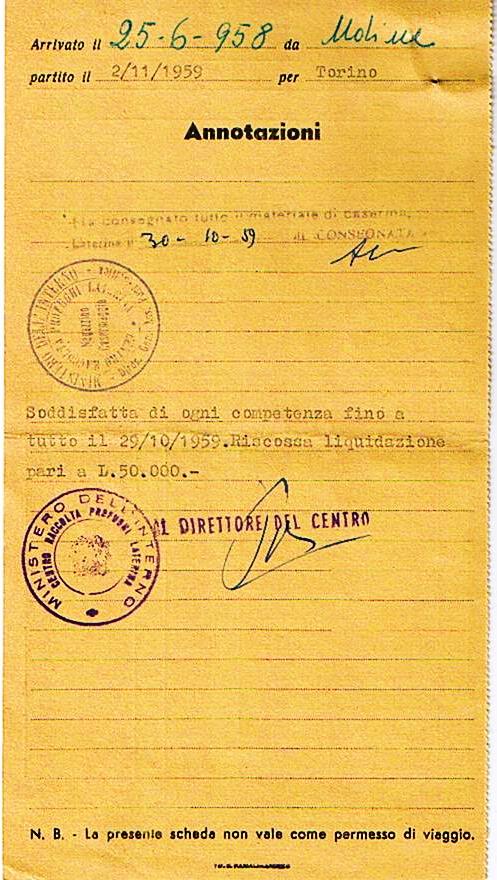 Arrivato il 25-6-958 da Udine
partito il 2/11/1959 per Torino
Annotazioni
Ha consegnato tutto il materiale di Caserma,
Laterina li 30-10-59 IL CONSEGNATA
MINISTERO DELL'INTERNO
CENTRO RACCOLTA PROFUGHI LATERINA
Magazzino
Casermaggio
Soddisfatta di ogni competenza fino a
tutto il 29/10/1959.Riscossa liquidazione
pari a L.50.000.-
IL DIRETTORE DEL CENTRO
MINISTERO DELL'INTERNO
CENTRO RACCOLTA PROFUGHI LATERINA
N. B. - La presente scheda non vale come permesso di viaggio.